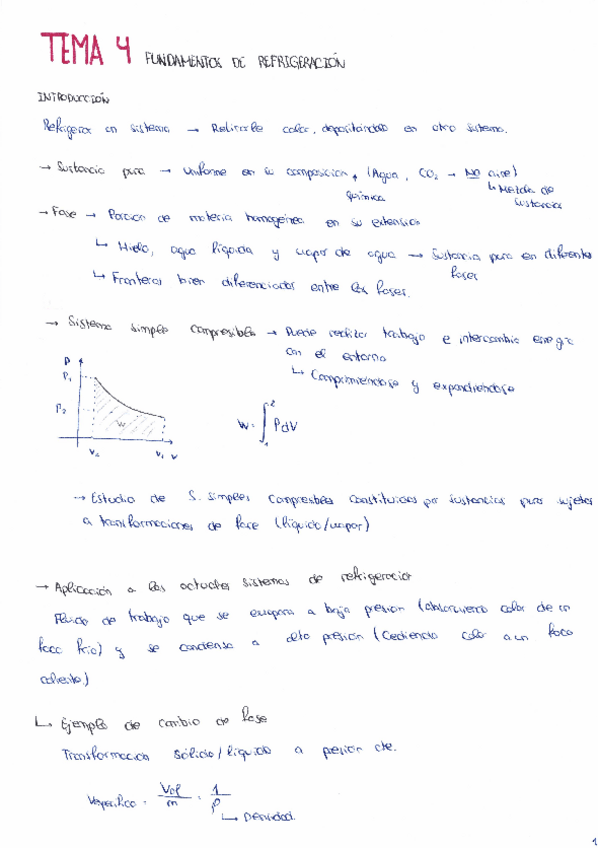 TEMA 4 FUNDAMENTOS DE REFRIGERACIÓN
INTRODUCCIÓN
Refrigerar un sistema → Retirarle calor, depositándolo en otro sistema.
→ Sustancia pura → Uniforme en su composición química (Agua, CO2 → No aire)
↳ Mezcla de sustancias
→ Fase → Porción de materia homogénea en su extensión
↳ Hielo, agua líquida y vapor de agua → Sustancia pura en diferente fases
↳ Fronteras bien diferenciadas entre las fases.
→ Sistema simple compresible → Puede realizar trabajo e intercambio energía
con el entorno
↳ Comprimiéndose y expandiéndose
P
P1
P2
W
V2 V1 V
W = ∫₁² PdV
→ Estudio de S. simples compresibles constituidos por sustancias puras sujetas
a transformaciones de fase (líquido/vapor)
→ Aplicación a los actuales sistemas de refrigeración
Fluido de trabajo que se evapora a baja presión (absorbiendo calor de un
foco frío) y se condensa a alta presión (Cediendo calor a un foco
caliente)
↳ Ejemplo de cambio de fase
Transformación sólido/líquido a presión cte.
Vespecífico = Vol/m = 1/ρ
↳ Densidad.
1